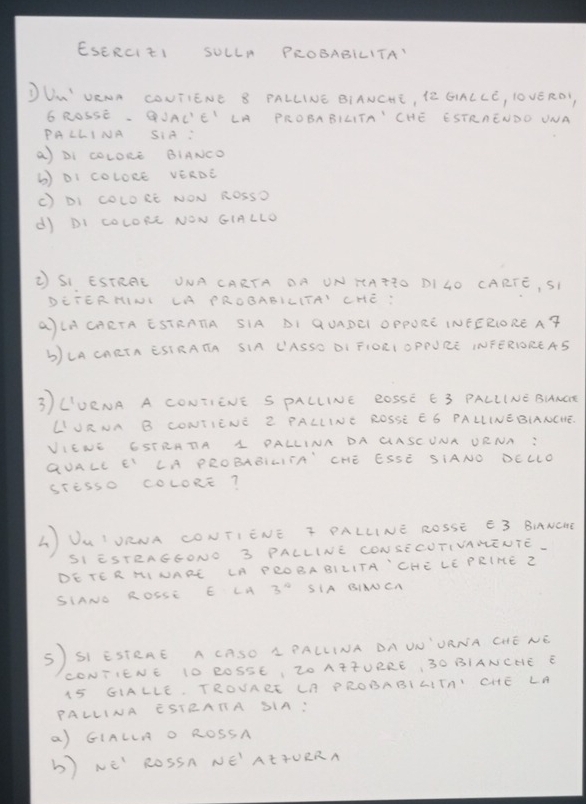 ESERCIZI SULLA PROBABILITA'
1) UN'URNA CONTIENE 8 PALLINE BIANCHE, 12 GIALLE, 10 VERDI,
6 ROSSE. QUAL'E' LA PROBABILITA' CHE ESTRAENDO UNA
PALLINA SIA:
a) DI COLORE BIANCO
b) DI COLORE VERDE
c) DI COLORE NON ROSSO
d) DI COLORE NON GIALLO
2) SI ESTRAE UNA CARTA DA UN MAZZO DI 40 CARTE, SI
DETERMINI LA PROBABILITA' CHE:
a) LA CARTA ESTRATTA SIA DI QUADRI OPPURE INFERIORE A 7
b) LA CARTA ESTRATTA SIA L'ASSO DI FIORI OPPURE INFERIORE A 5
3) L'URNA A CONTIENE 5 PALLINE ROSSE E 3 PALLINE BIANCHE
L'URNA B CONTIENE 2 PALLINE ROSSE E 6 PALLINE BIANCHE.
VIENE ESTRATTA 1 PALLINA DA CIASCUNA URNA:
QUALE E' LA PROBABILITA' CHE ESSE SIANO DELLO
STESSO COLORE?
4) UN'URNA CONTIENE 7 PALLINE ROSSE E 3 BIANCHE
SI ESTRAGGONO 3 PALLINE CONSECUTIVAMENTE.
DETERMINARE LA PROBABILITA' CHE LE PRIME 2
SIANO ROSSE E LA 3° SIA BIANCA
5) SI ESTRAE A CASO 1 PALLINA DA UN'URNA CHE NE
CONTIENE 10 ROSSE, 20 AZZURRE, 30 BIANCHE E
15 GIALLE. TROVARE LA PROBABILITA' CHE LA
PALLINA ESTRATTA SIA:
a) GIALLA O ROSSA
b) NE' ROSSA NE' AZZURRA